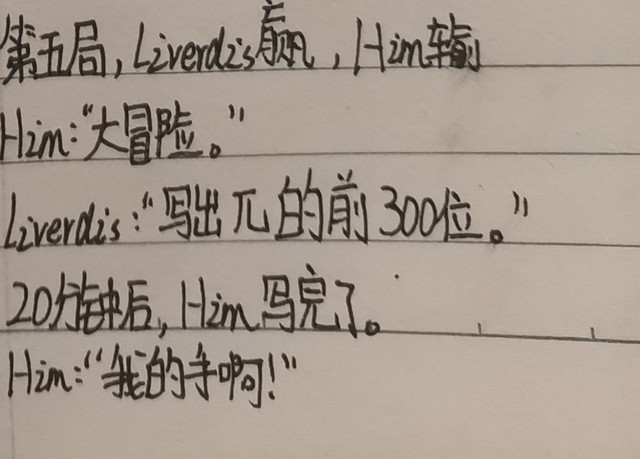 第五局,Liverdis赢,Him输
Him:“大冒险。”
Liverdis:“写出π的前300位。”
20分钟后,Him写完了。
Him:“我的手啊!”